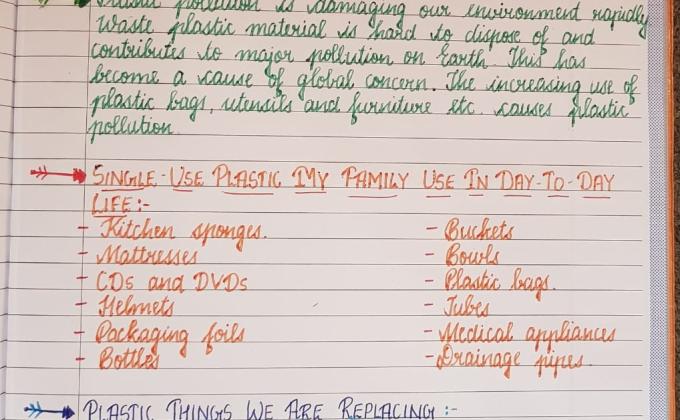 pollution is damaging our environment rapidly
Waste plastic material is hard to dispose of and
contributes to major pollution on Earth. This has
become a cause of global concern. The increasing use of
plastic bags, utensils and furniture etc. causes plastic
pollution.
SINGLE-USE PLASTIC MY FAMILY USE IN DAY-TO-DAY
LIFE:-
- Kitchen sponges.
- Mattresses
- CDs and DVDs
- Helmets
- Packaging foils
- Bottles
- Buckets
- Bowls
- Plastic bags.
- Tubes
- Medical appliances
- Drainage pipes.
PLASTIC THINGS WE ARE REPLACING :-